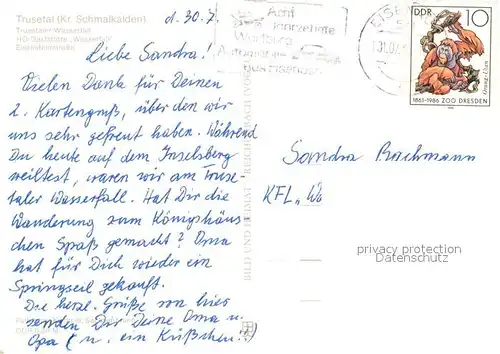 Trusetal (Kr. Schmalkalden)
Trusetaler Wasserfall
HO-Gaststätte „Wasserfall"
d. 30.7.
Liebe Sandra!
Vielen Dank für Deinen
2. Kartengruß, über den wir
uns sehr gefreut haben. Während
Du heute auf dem Inselsberg
weiltest, waren wir am Truse-
taler Wasserfall. Hat Dir die
Wanderung zum Königshäus-
chen Spaß gemacht? Oma
hat für Dich wieder ein
Springseil gekauft.
Die herzl. Grüße von hier
senden Dir Deine Oma u.
Opa (u. ein Küßchen!)
Acht
Jahrzehnte
Wartburg
Automobile
EISE
DDR
10
Orang-Utan
1861-1986 ZOO DRESDEN
Sandra
KFL „
privacy protection
Datenschutz